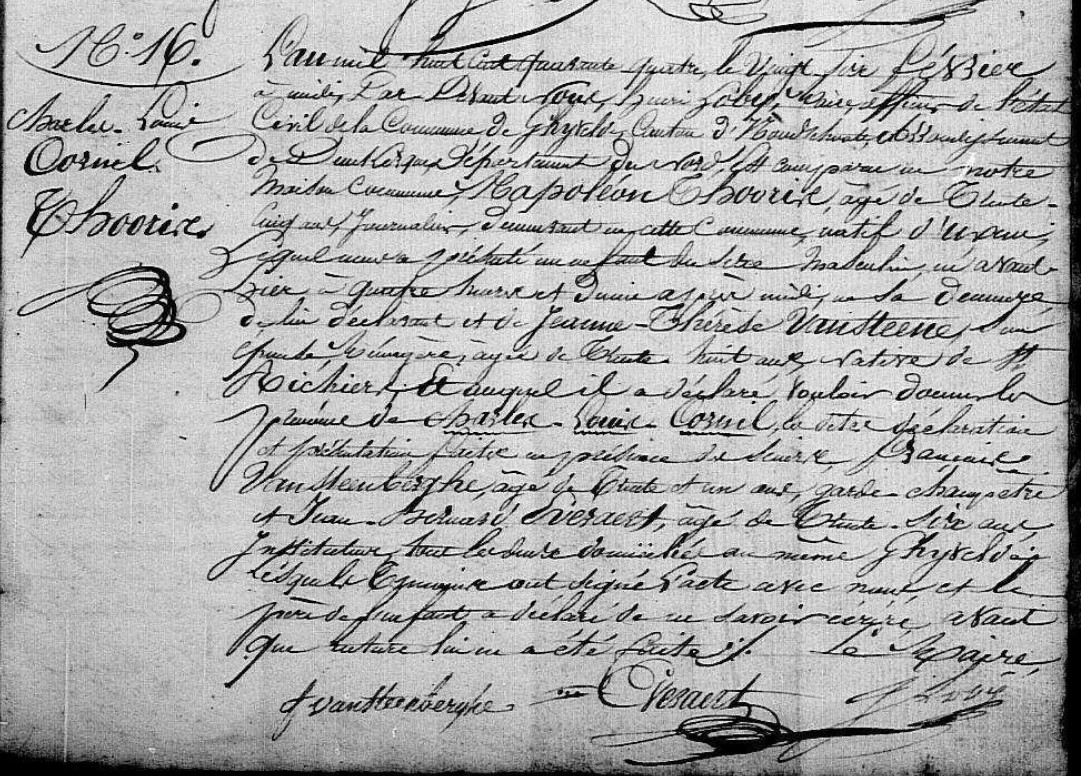 N.° 16.
Charles-Louis
Cornil
Thooris.
L'an mil huit cent quarante quatre, le Vingt Six février
à midi, Par Devant Nous, Maire, officier de l'état
Civil de la Commune de Ghyvelde, Canton d'Hondschoote, Arrondissement
de Dunkerque, Département du Nord, Est comparu en notre
Maison Commune, Napoléon Thooris, âgé de Trente-
Cinq ans, Journalier, demeurant en cette Commune, natif d'
Lequel nous a présenté un enfant du sexe Masculin, né avant
hier à quatre heures et demie après midi, en Sa demeure
de lui déclarant et de Jeanne-Thérèse Vansteene, Son
épouse Ménagère, âgée de Trente-huit ans, Native de
Et auquel il a déclaré vouloir donner les
prénoms de Charles-Louis-Cornil, les dites déclaration
et présentation faites en présence de Francois
Vansteenberghe, âgé de Trente et un ans, garde-champetre
et Jean-Bernard Everaert, âgé de Trente-Six ans
Instituteur, tous les deux domiciliés au même Ghyvelde,
Lesquels Témoins ont Signé l'acte avec nous et le
père de l'enfant a déclaré de ne savoir écrire, avant
que lecture lui en a été faite ./. Le Maire,
f vansteenberghe Everaert